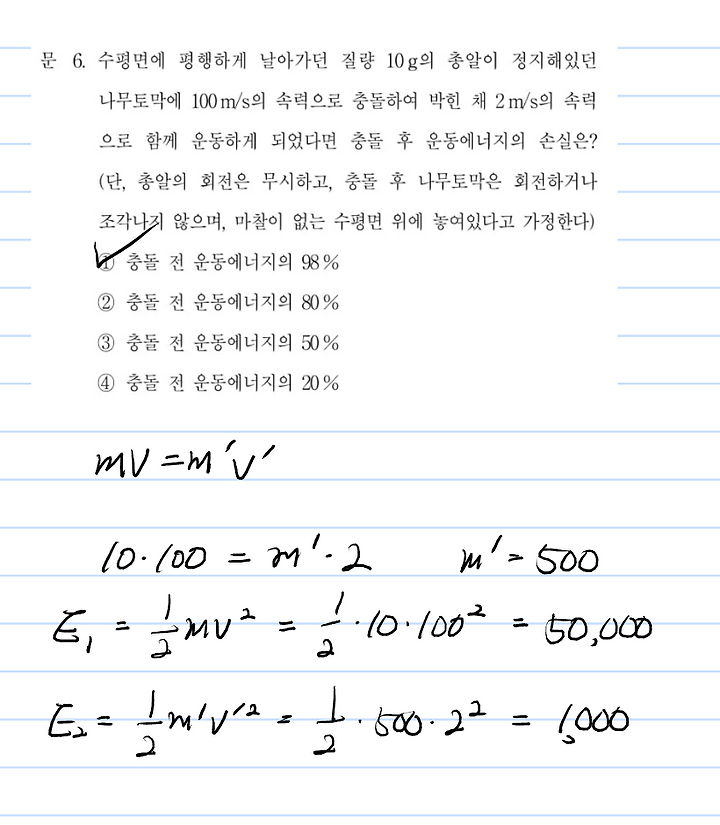 문 6. 수평면에 평행하게 날아가던 질량 10 g의 총알이 정지해있던
나무토막에 100 m/s의 속력으로 충돌하여 박힌 채 2 m/s의 속력
으로 함께 운동하게 되었다면 충돌 후 운동에너지의 손실은?
(단, 총알의 회전은 무시하고, 충돌 후 나무토막은 회전하거나
조각나지 않으며, 마찰이 없는 수평면 위에 놓여있다고 가정한다)
① 충돌 전 운동에너지의 98 %
② 충돌 전 운동에너지의 80 %
③ 충돌 전 운동에너지의 50 %
④ 충돌 전 운동에너지의 20 %
mv = m′v′
10·100 = m′·2 m′= 500
E₁ = 1/2 mv² = 1/2 ·10·100² = 50,000
E₂ = 1/2 m′v′² = 1/2 ·500·2² = 1,000